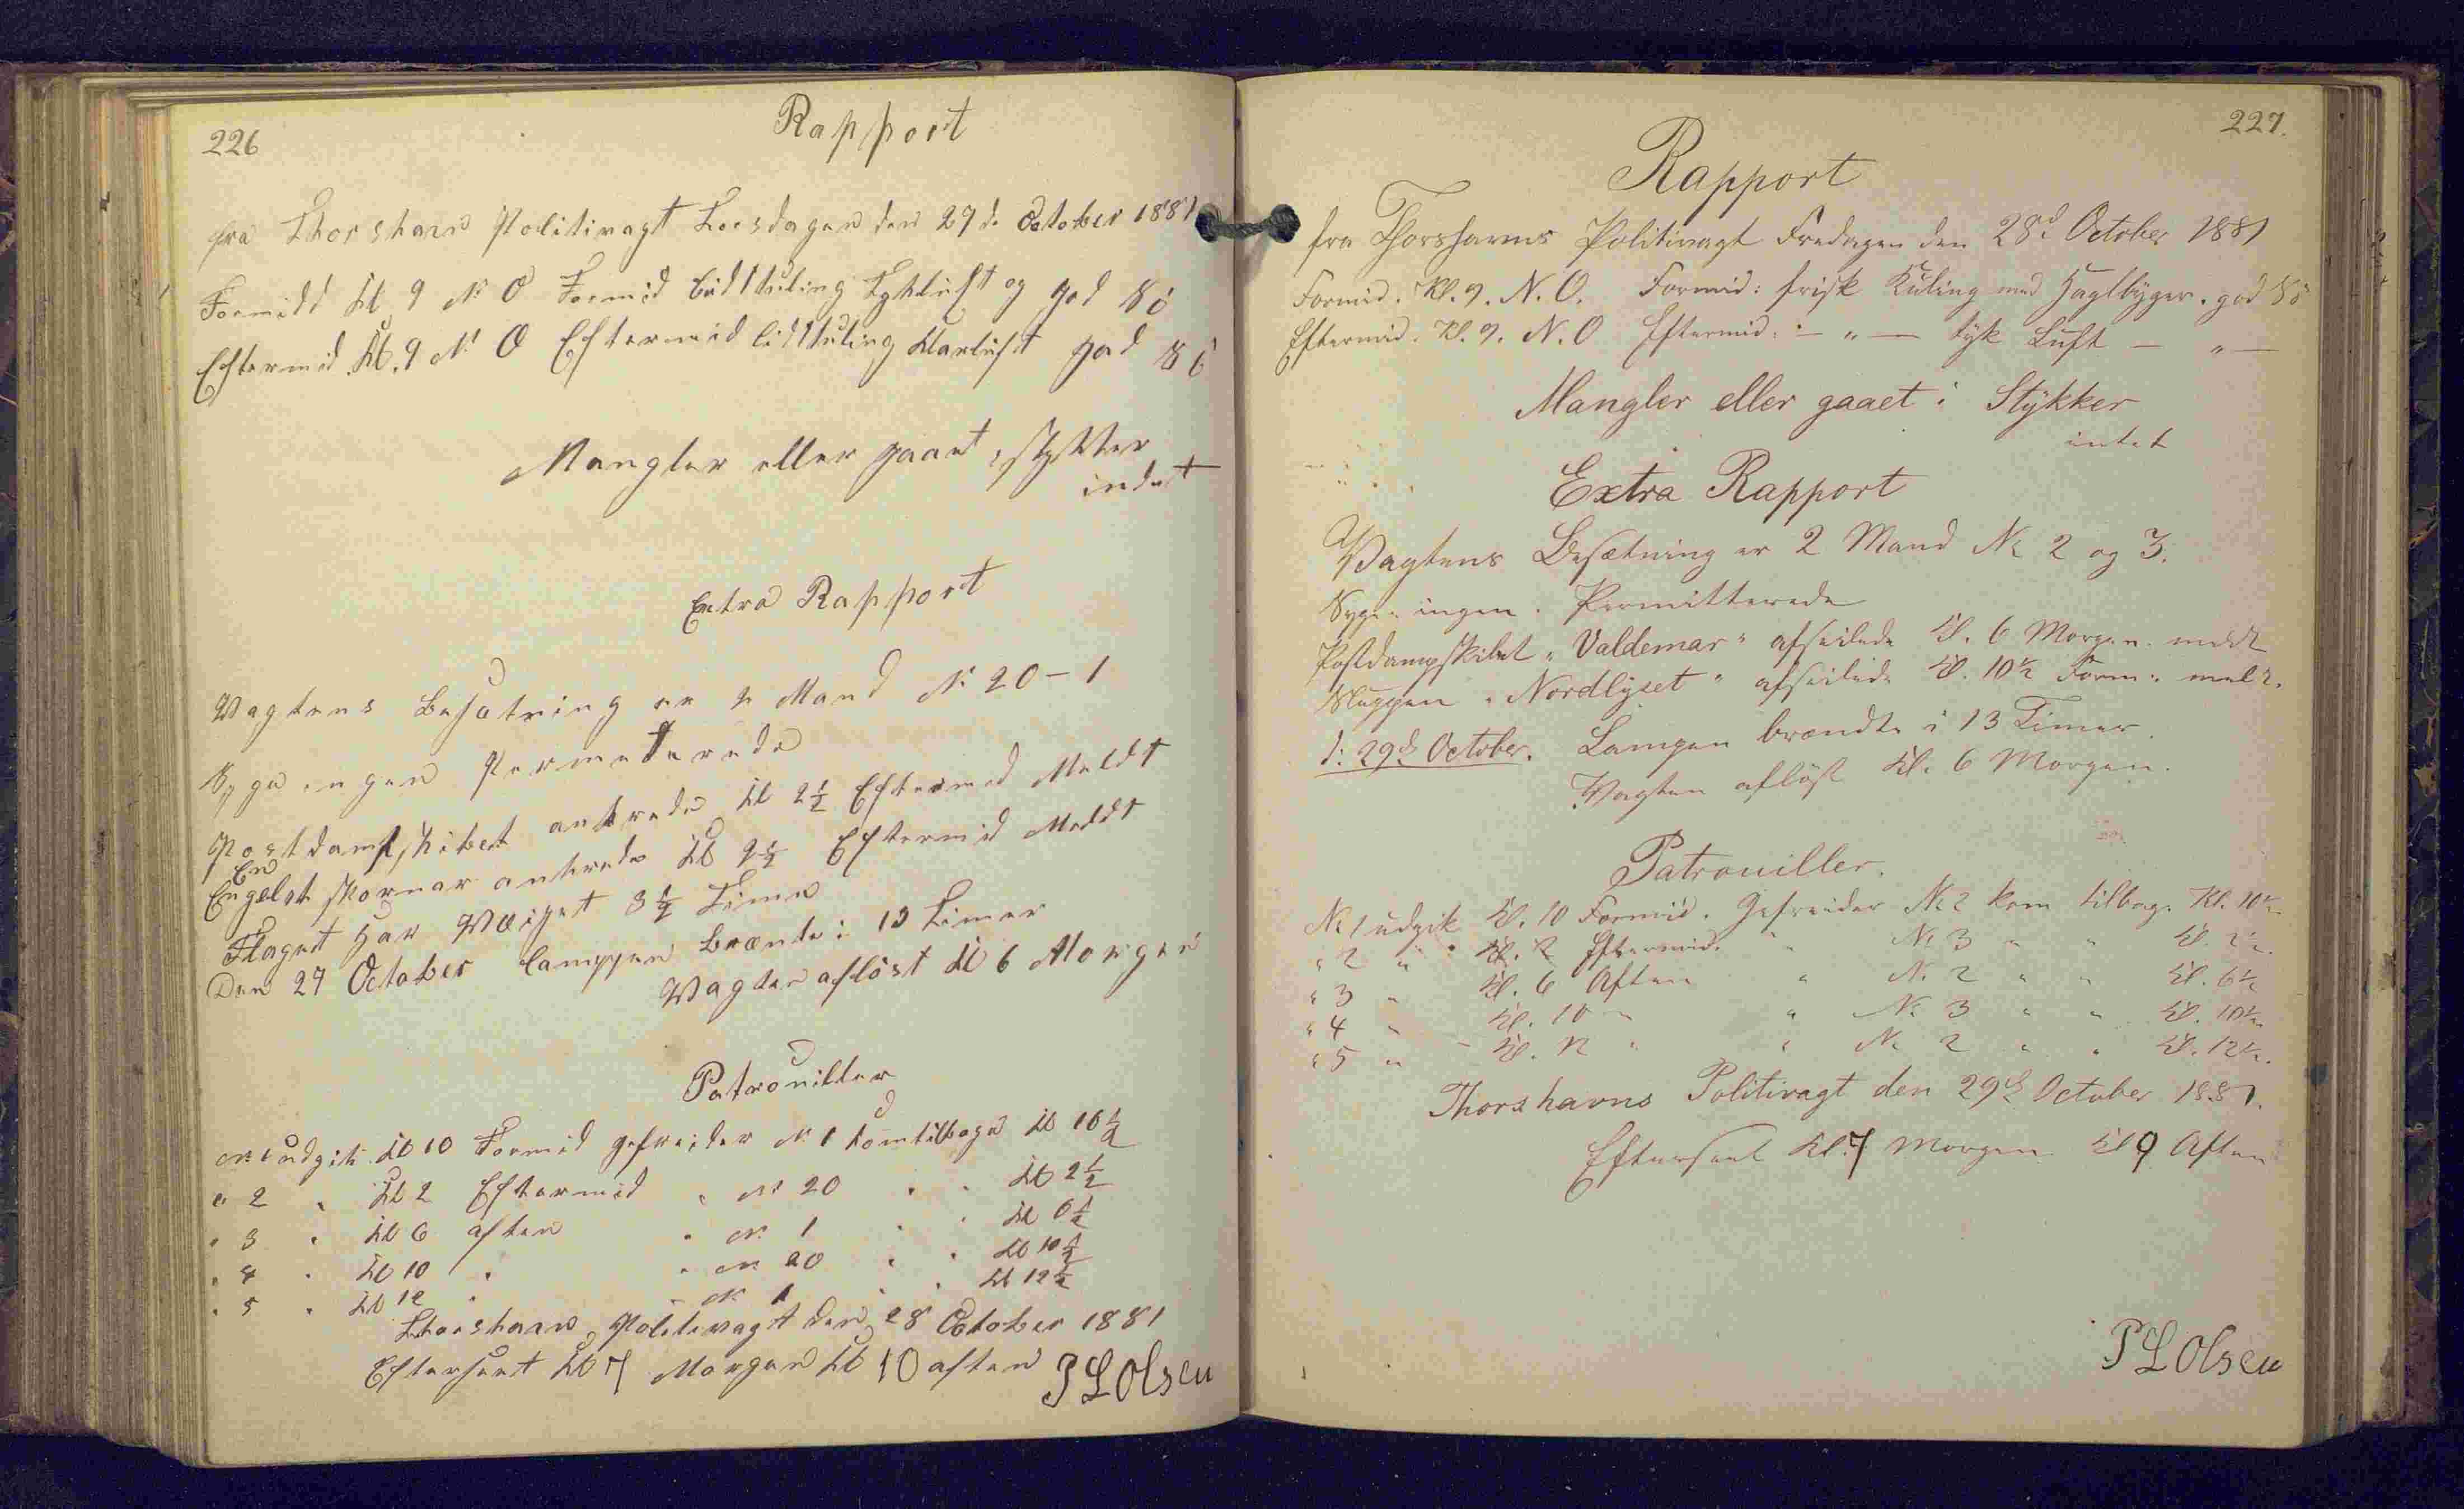 226
Rapport
fra Thorshavn Politivagt Torsdagen den 27 de October 1881
Formidd Kl 9 N. O Formid lidt kuling Tykluft og god Sö
Eftermid. Kl. 9 N. O Eftermid lidt kuling klarluft god Sö
Mangler eller gaaet i stykker
indet
Extra Rapport
Wagtens Besatning er 2 Mand N: 20 - 1
Syge ingen Permeterede
Postdampskibet ankrede Kl 2 1/2 Eftermid Meldt
En
Engelsk skonnar ankrede Kl 2 1/2 Eftermid Meldt
Flaget har Waiget 3 1/2 Time
Den 27 October Lampen Brænte i 13 Timer
Wagten aflöst Kl 6 Morgen
Patrouiller
N: 1 udgik Kl 10 Formid gefreider N. 1 kom tilbage Kl 10 1/2
" 2 " Kl 2 Eftermid " N: 20 " " Kl 2 1/2
" 3 " Kl 6 aften " N: 1 " " Kl 6 1/2
" 4 " Kl 10 " " N: 20 " " Kl 10 1/2
" 5 " Kl 12 " " N: 1 " " Kl 12 1/2
Thorshavn Politivagt den 28 October 1881
Efterseet Kl 7 Morgen Kl 10 aften P L Olsen
227.
Rapport
fra Thorshavns Politivagt Fredagen den 28d October 1881
Formid. Kl. 9. N. O. Formid: frisk Kuling med Haglbyger. god Sö
Eftermid. Kl. 9. N. O Eftermid: — " — tyk Luft — " —
Mangler eller gaaet i Stykker
intet
Extra Rapport
Vagtens Besætning er 2 Mand N: 2 og 3.
Syge: ingen. Permitterede
Postdampskibet "Valdemar" afseilede Kl. 6 Morgen. meldt
Sluppen "Nordlyset" afseilede Kl. 10 1/2 Form: meldt.
d: 29d October. Lampen brændte i 13 Timer.
Vagten aflöst Kl. 6 Morgen.
Patrouiller.
N: 1 udgik Kl. 10 Formid. Gefreider N: 2 kom tilbage Kl. 10 1/2.
" 2 " " Kl. 2 Eftermid. " N: 3 " " Kl. 2 1/2.
" 3 " Kl. 6 Aften " N: 2 " " Kl. 6 1/2
" 4 " Kl. 10 " " N: 3 " " Kl. 10 1/2.
" 5 " - Kl. 12 " " N: 2 " " Kl. 12 1/2.
Thorshavns Politivagt den 29d October 1881.
Efterseet Kl. 7 Morgen Kl 9 Aften
P L Olsen